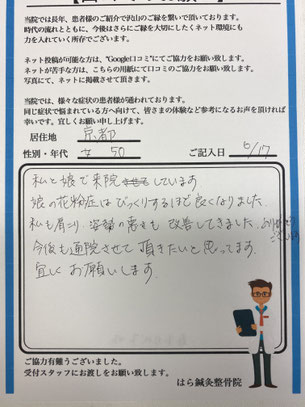 当院では長年、患者様のご紹介で沢山のご縁を繋いで頂いております。
時代の流れとともに、今後はさらにご縁を大切にしたくネット環境にも
力を入れていく所存でございます。
ネット投稿が可能な方は、"Google口コミ"にてご協力をお願い致します。
ネットが苦手な方は、こちらの用紙にて口コミのご協力をお願い致します。
写真にて、ネットに掲載させて頂きます。
当院では、様々な症状の患者様が通われております。
同じ症状で悩まれている方へ向けて、皆さまの体験など参考になるお声を頂ければ
幸いです。宜しくお願い申し上げます。
居住地 京都
性別・年代 女 50 ご記入日 6/17
私と娘で来院しています
娘の花粉症はびっくりするほど良くなりました.
私も肩こり、姿勢の悪さも改善してきました.
今後も通院させて頂きたいと思ってます.
宜しくお願いします.
ご協力有難うございました。
受付スタッフにお渡しをお願い致します。
はら鍼灸整骨院